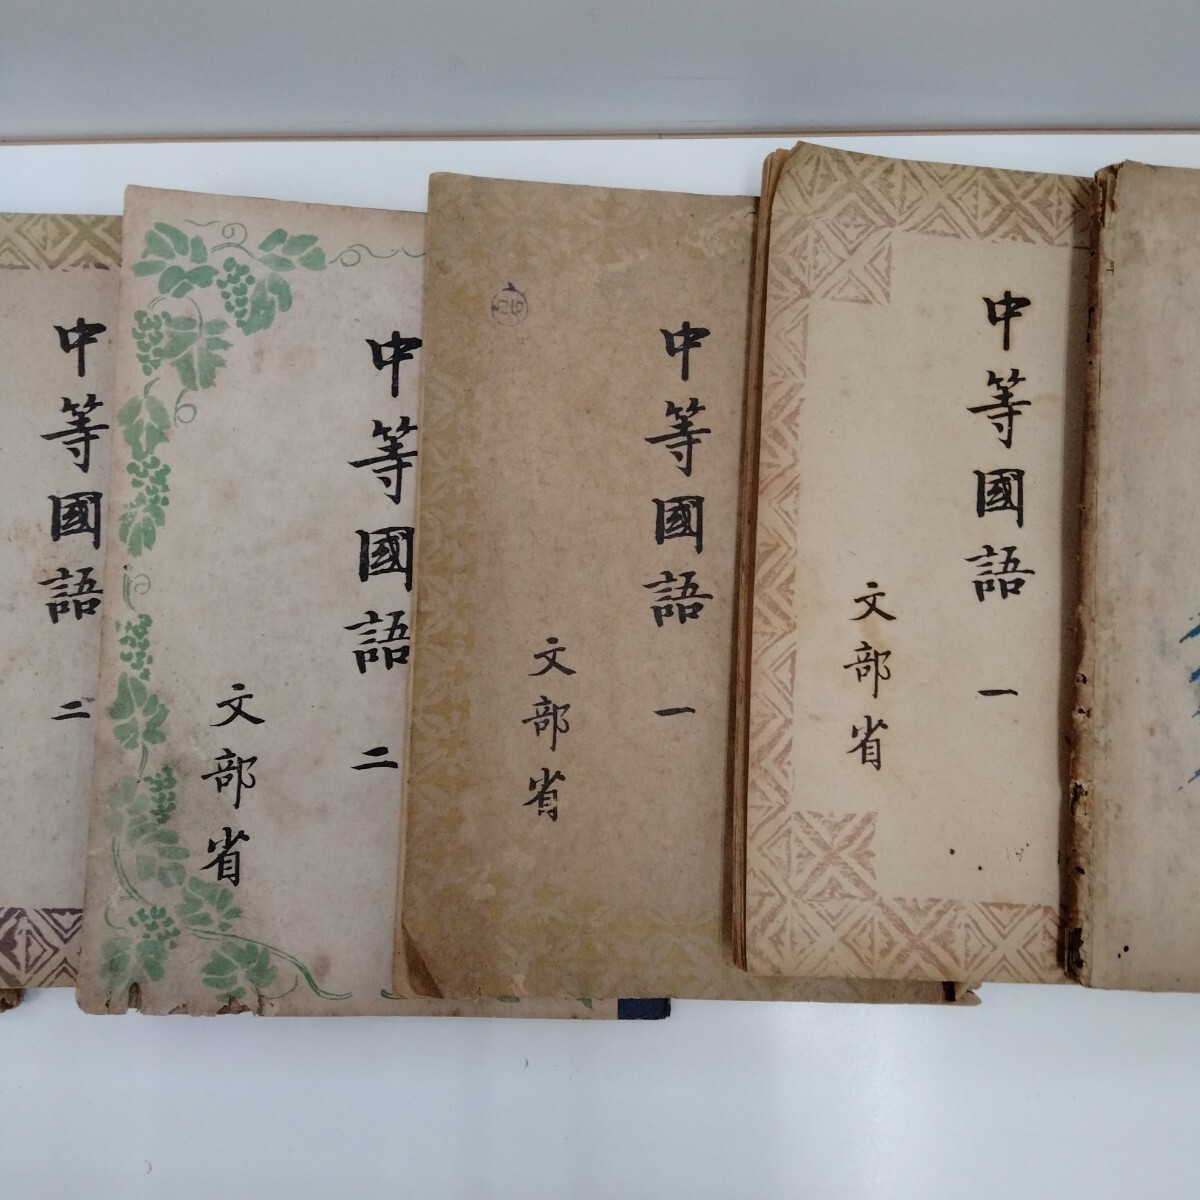 中等國語 一
文部省
中等國語 一
文部省
中等國語 二
文部省
中等國語 二